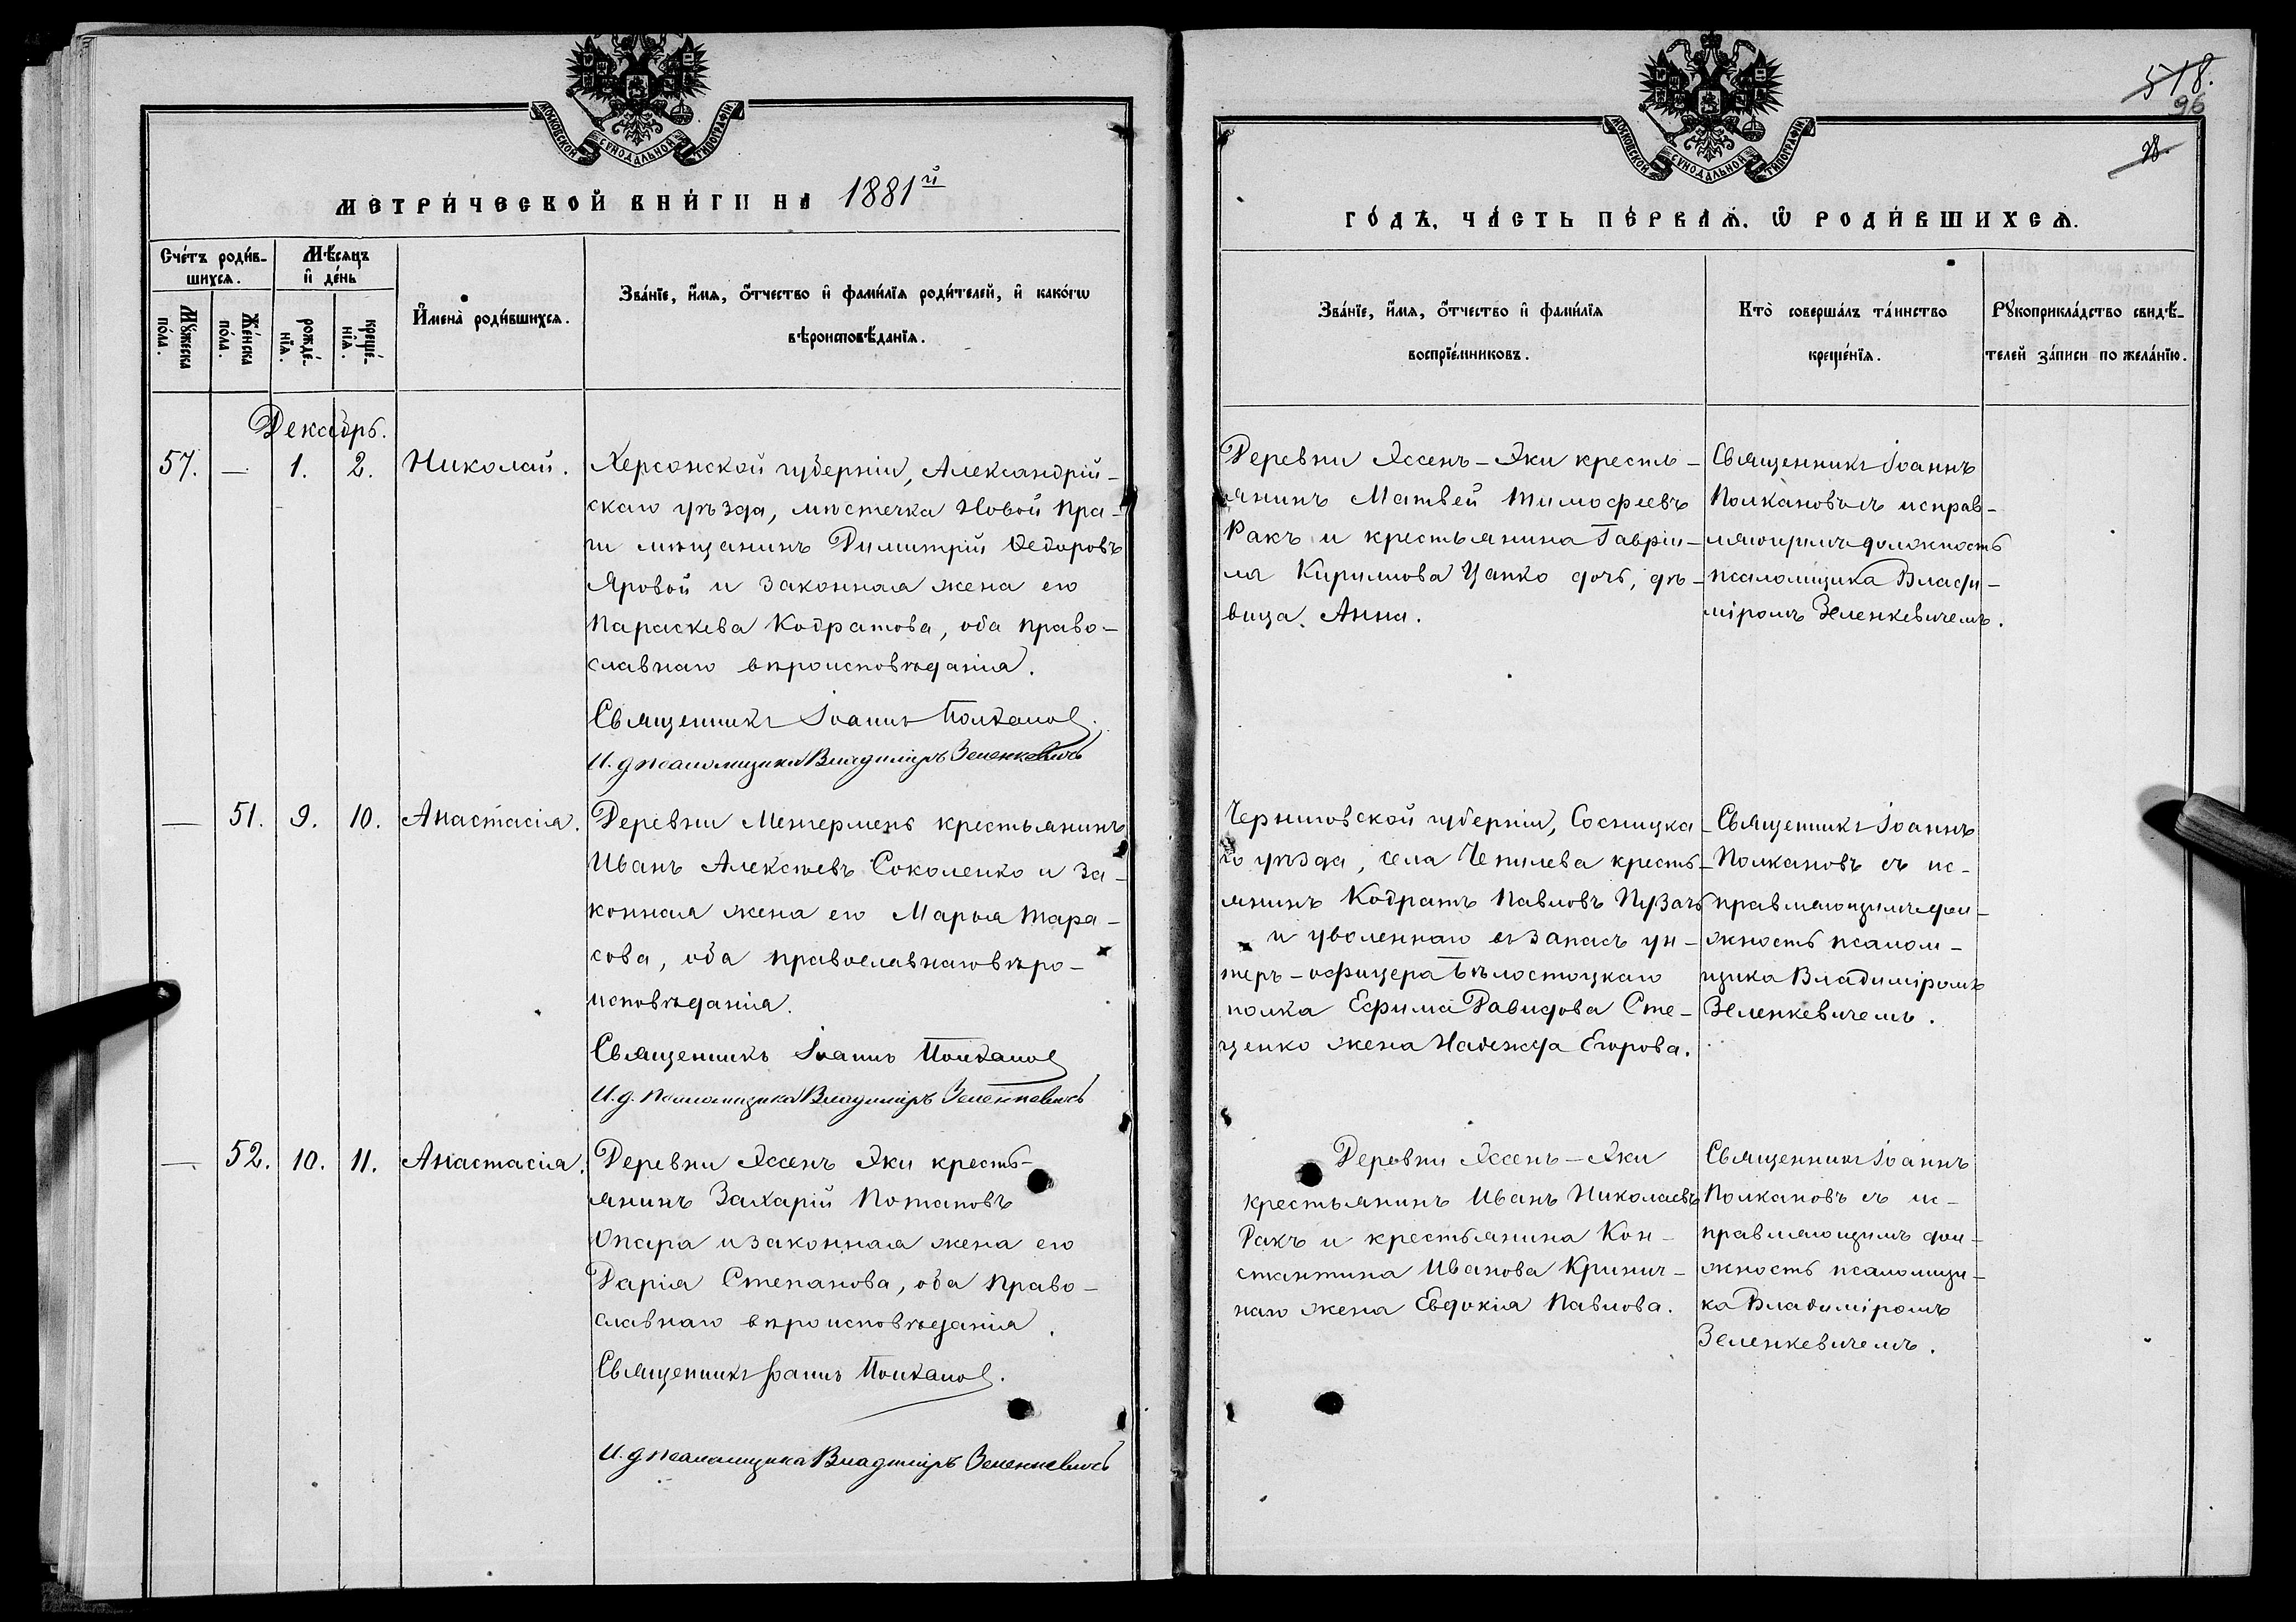 МОСКОВСКОЙ СѴНОДАЛЬНОЙ ТИПОГРАФІИ
МЕТРИ́ЧЕСКОЙ КНИ́ГИ НА 1881й
Сче́тъ роди́в-
шихся.
Мѣ́сяцъ
и де́нь
Му́жеска
по́ла.
Же́нска
по́ла.
рожде́-
нїя.
креще́-
нїя.
Имена̀ роди́вшихся.
Зва́нїе, и́мя, о́тчество и фами́лїя роди́телей, и како́гѡ
вѣроисповѣ́данїя.
Декабрь.
57. — 1. 2. Николай.
Херсонской губерніи, Александрій-
скаго уѣзда, мѣстечка Новой Пра-
ги мѣщанинъ Димитрій Ѳедоровъ
Яровой и законная жена его
Параскева Кодратова, оба право-
славнаго вѣроисповѣданія.
Священникъ Іоаннъ Полкановъ.
И. д. псаломщика Владиміръ Зеленкевичъ
— 51. 9. 10. Анастасія.
Деревни Менгермень крестьянинъ
Иванъ Алексѣевъ Соколенко и за-
конная жена его Марья Тара-
сова, оба православнаго вѣро-
исповѣданія.
Священникъ Іоаннъ Полкановъ
И. д. псаломщика Владиміръ Зеленкевичъ
— 52. 10. 11. Анастасія.
Деревни Яссенъ Яки кресть-
янинъ Захарій Потаповъ
Опара и законная жена его
Дарія Степанова, оба право-
славнаго вѣроисповѣданія.
Священникъ Іоаннъ Полкановъ.
И. д. псаломщика Владиміръ Зеленкевичъ
518.
96
МОСКОВСКОЙ СѴНОДАЛЬНОЙ ТИПОГРАФІИ
ГО́ДЪ, ЧА́СТЬ ПЕ́РВАЯ, Ѡ РОДИ́ВШИХСЯ.
Зва́нїе, и́мя, о́тчество и фами́лїя
воспрїе́мниковъ.
Кто̀ соверша́лъ та́инство
креще́нїя.
Рꙋкоприкла́дство свидѣ́-
телей за́писи по жела́нїю.
Деревни Яссенъ-Яки кресть-
янинъ Матвей Тимофеевъ
Ракъ и крестьянина Гаврiи-
ла Кириллова Цапко дочь, дѣ-
вица Анна.
Священникъ Іоаннъ
Полкановъ съ исправ-
ляющимъ должность
псаломщика Влади-
міромъ Зеленкевичемъ.
Черниговской губерніи, Сосницка-
го уѣзда, села Чепилева кресть-
янинъ Кодратъ Павловъ Пузачъ
и уволеннаго въ запасъ ун-
теръ-офицера Бѣлостоцкаго
полка Ефима Давидова Сте-
ценко жена Надежда Егорова.
Священникъ Іоаннъ
Полкановъ съ ис-
правляющимъ дол-
жность псалом-
щика Владиміромъ
Зеленкевичемъ.
Деревни Яссенъ-Яки
крестьянинъ Иванъ Николаевъ
Ракъ и крестьянина Кон-
стантина Иванова Кринич-
наго жена Евдокія Павлова.
Священникъ Іоаннъ
Полкановъ съ ис-
правляющимъ дол-
жность псаломщи-
ка Владиміромъ
Зеленкевичемъ.